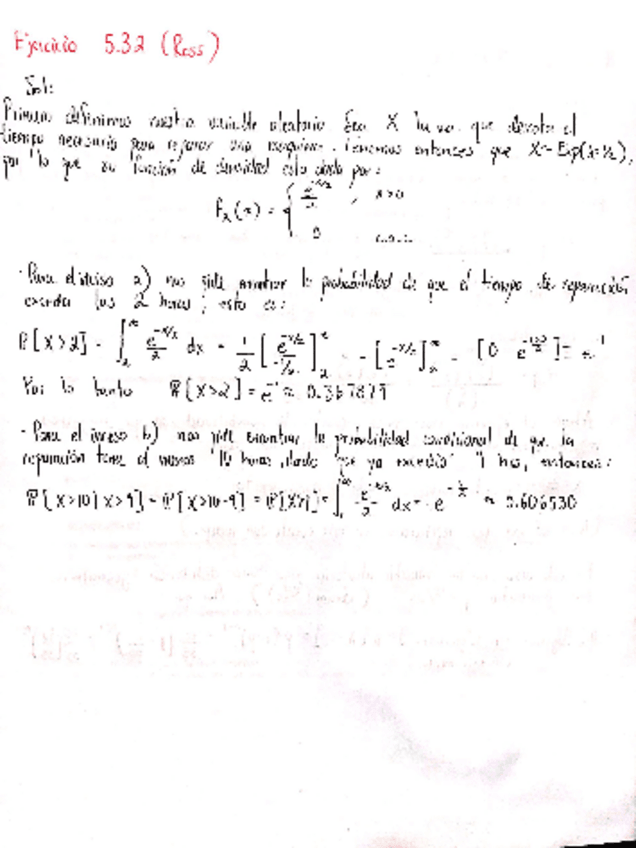 Ejercicio 5.32 (Ross)
Sol:
Primero definimos nuestra variable aleatoria. Sea X la v.a. que denota el
tiempo necesario para reparar una maquina. Tenemos entonces que X~Exp(λ=1/2),
por lo que su función de densidad esta dada por:
f_X(x) = { e^{-x/2}/2 , x>0
0
· Para el inciso a) nos pide encontrar la probabilidad de que el tiempo de reparación
exceda las 2 horas; esto es:
P[X>2] = ∫_2^∞ e^{-x/2}/2 dx = 1/2 [e^{-x/2}/-1/2]_2^∞ = -[e^{-x/2}]_2^∞ = e^{-1}
Por lo tanto P[X>2] = e^{-1} ≈ 0.367879
· Para el inciso b) nos pide encontrar la probabilidad condicional de que la
reparación tome al menos 10 horas, dado que ya excedio 9 hrs, entonces:
P[X>10|X>9] = P[X>10-9] = P[X>1] = ∫_1^∞ e^{-x/2}/2 dx = e^{-1/2} ≈ 0.606530